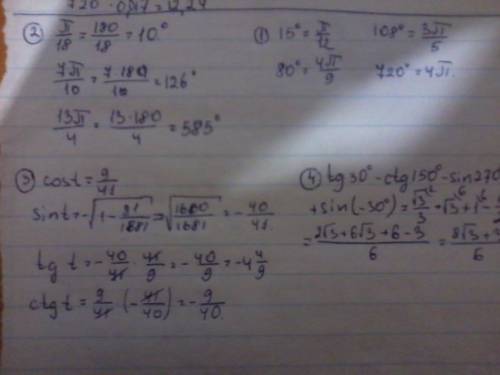 720 · 0,17 = 12,24
② π/18 = 180/18 = 10°
7π/10 = 7·180/10 = 126°
13π/4 = 13·180/4 = 585°
① 15° = π/12 108° = 3π/5
80° = 4π/9 720° = 4π.
③ cost = 9/41
sint = -√(1 - 81/1681) = √(1600/1681) = -40/41.
tg t = -40/41 · 41/9 = -40/9 = -4 4/9
ctg t = 9/41 · (-41/40) = -9/40.
④ tg30° - ctg150° - sin270
+ sin(-30°) = √3/3 + √3 + 1 -
= 2√3+6√3+6-3/6 = 8√3+3/6